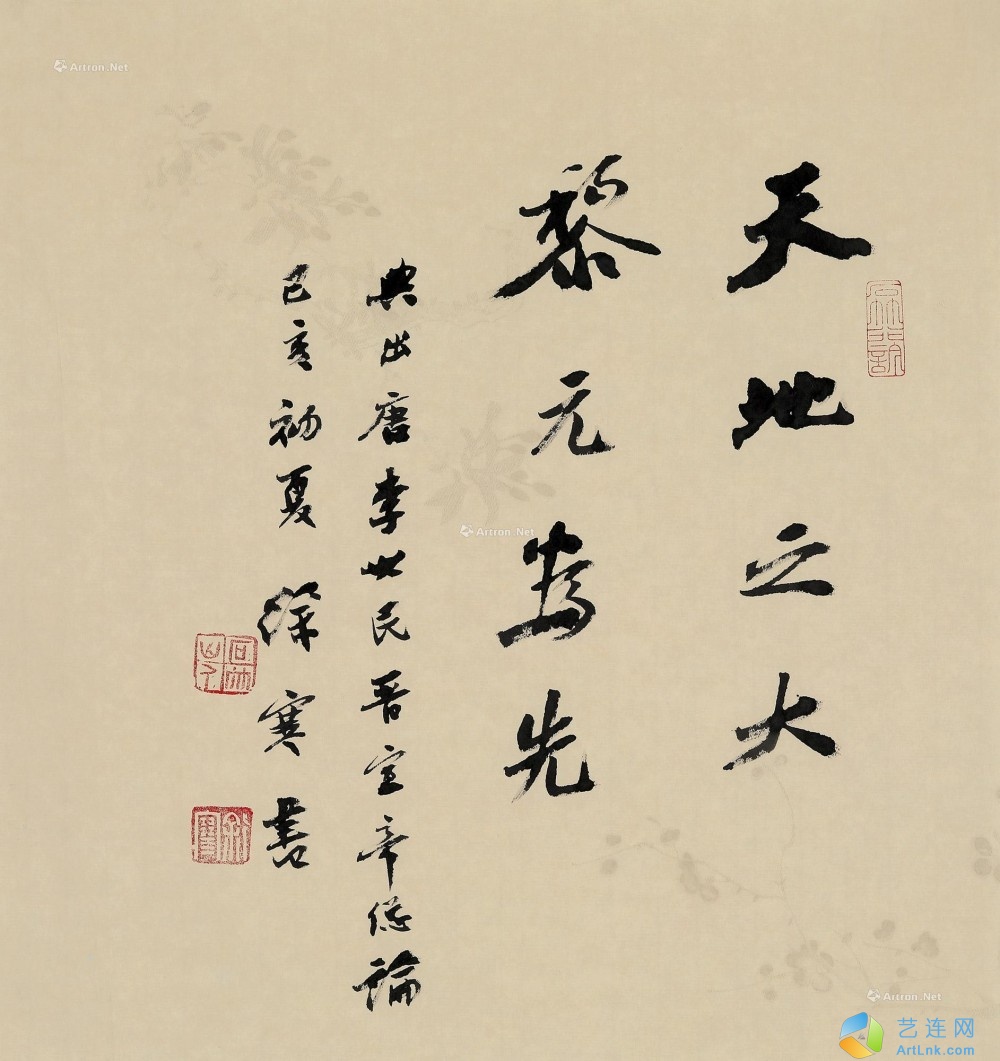 天地之大
黎元為先
典出唐李世民晋宣帝總論
己亥初夏 徐寒書
Artron.Net
Artron.Net
Artron.Net
艺连网
ArtLnk.com